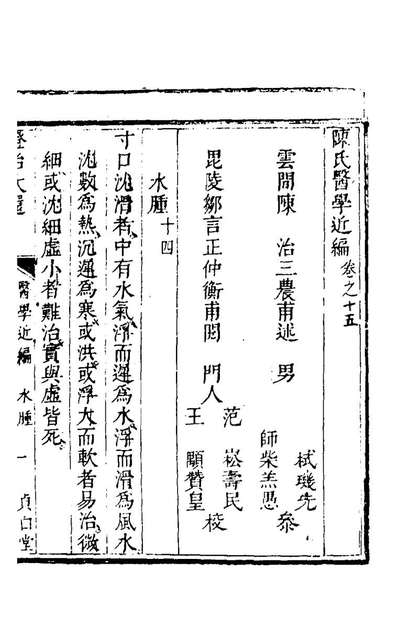 陳氏醫學近編 卷之十五
雲間陳 治三農甫述 男
栻璣先
師柴羔愚 叅
毘陵鄒言正仲衡甫閱 門人
范 崧壽民
王 顯贊皇 校
水腫十四
寸口沈滑者中有水氣浮而遲爲水浮而滑爲風水
沈數爲熱沉遲爲寒或洪或浮大而軟者易治微
細或沈細虛小者難治實與虛皆死
證治大還
醫學近編 水腫 一 貞白堂